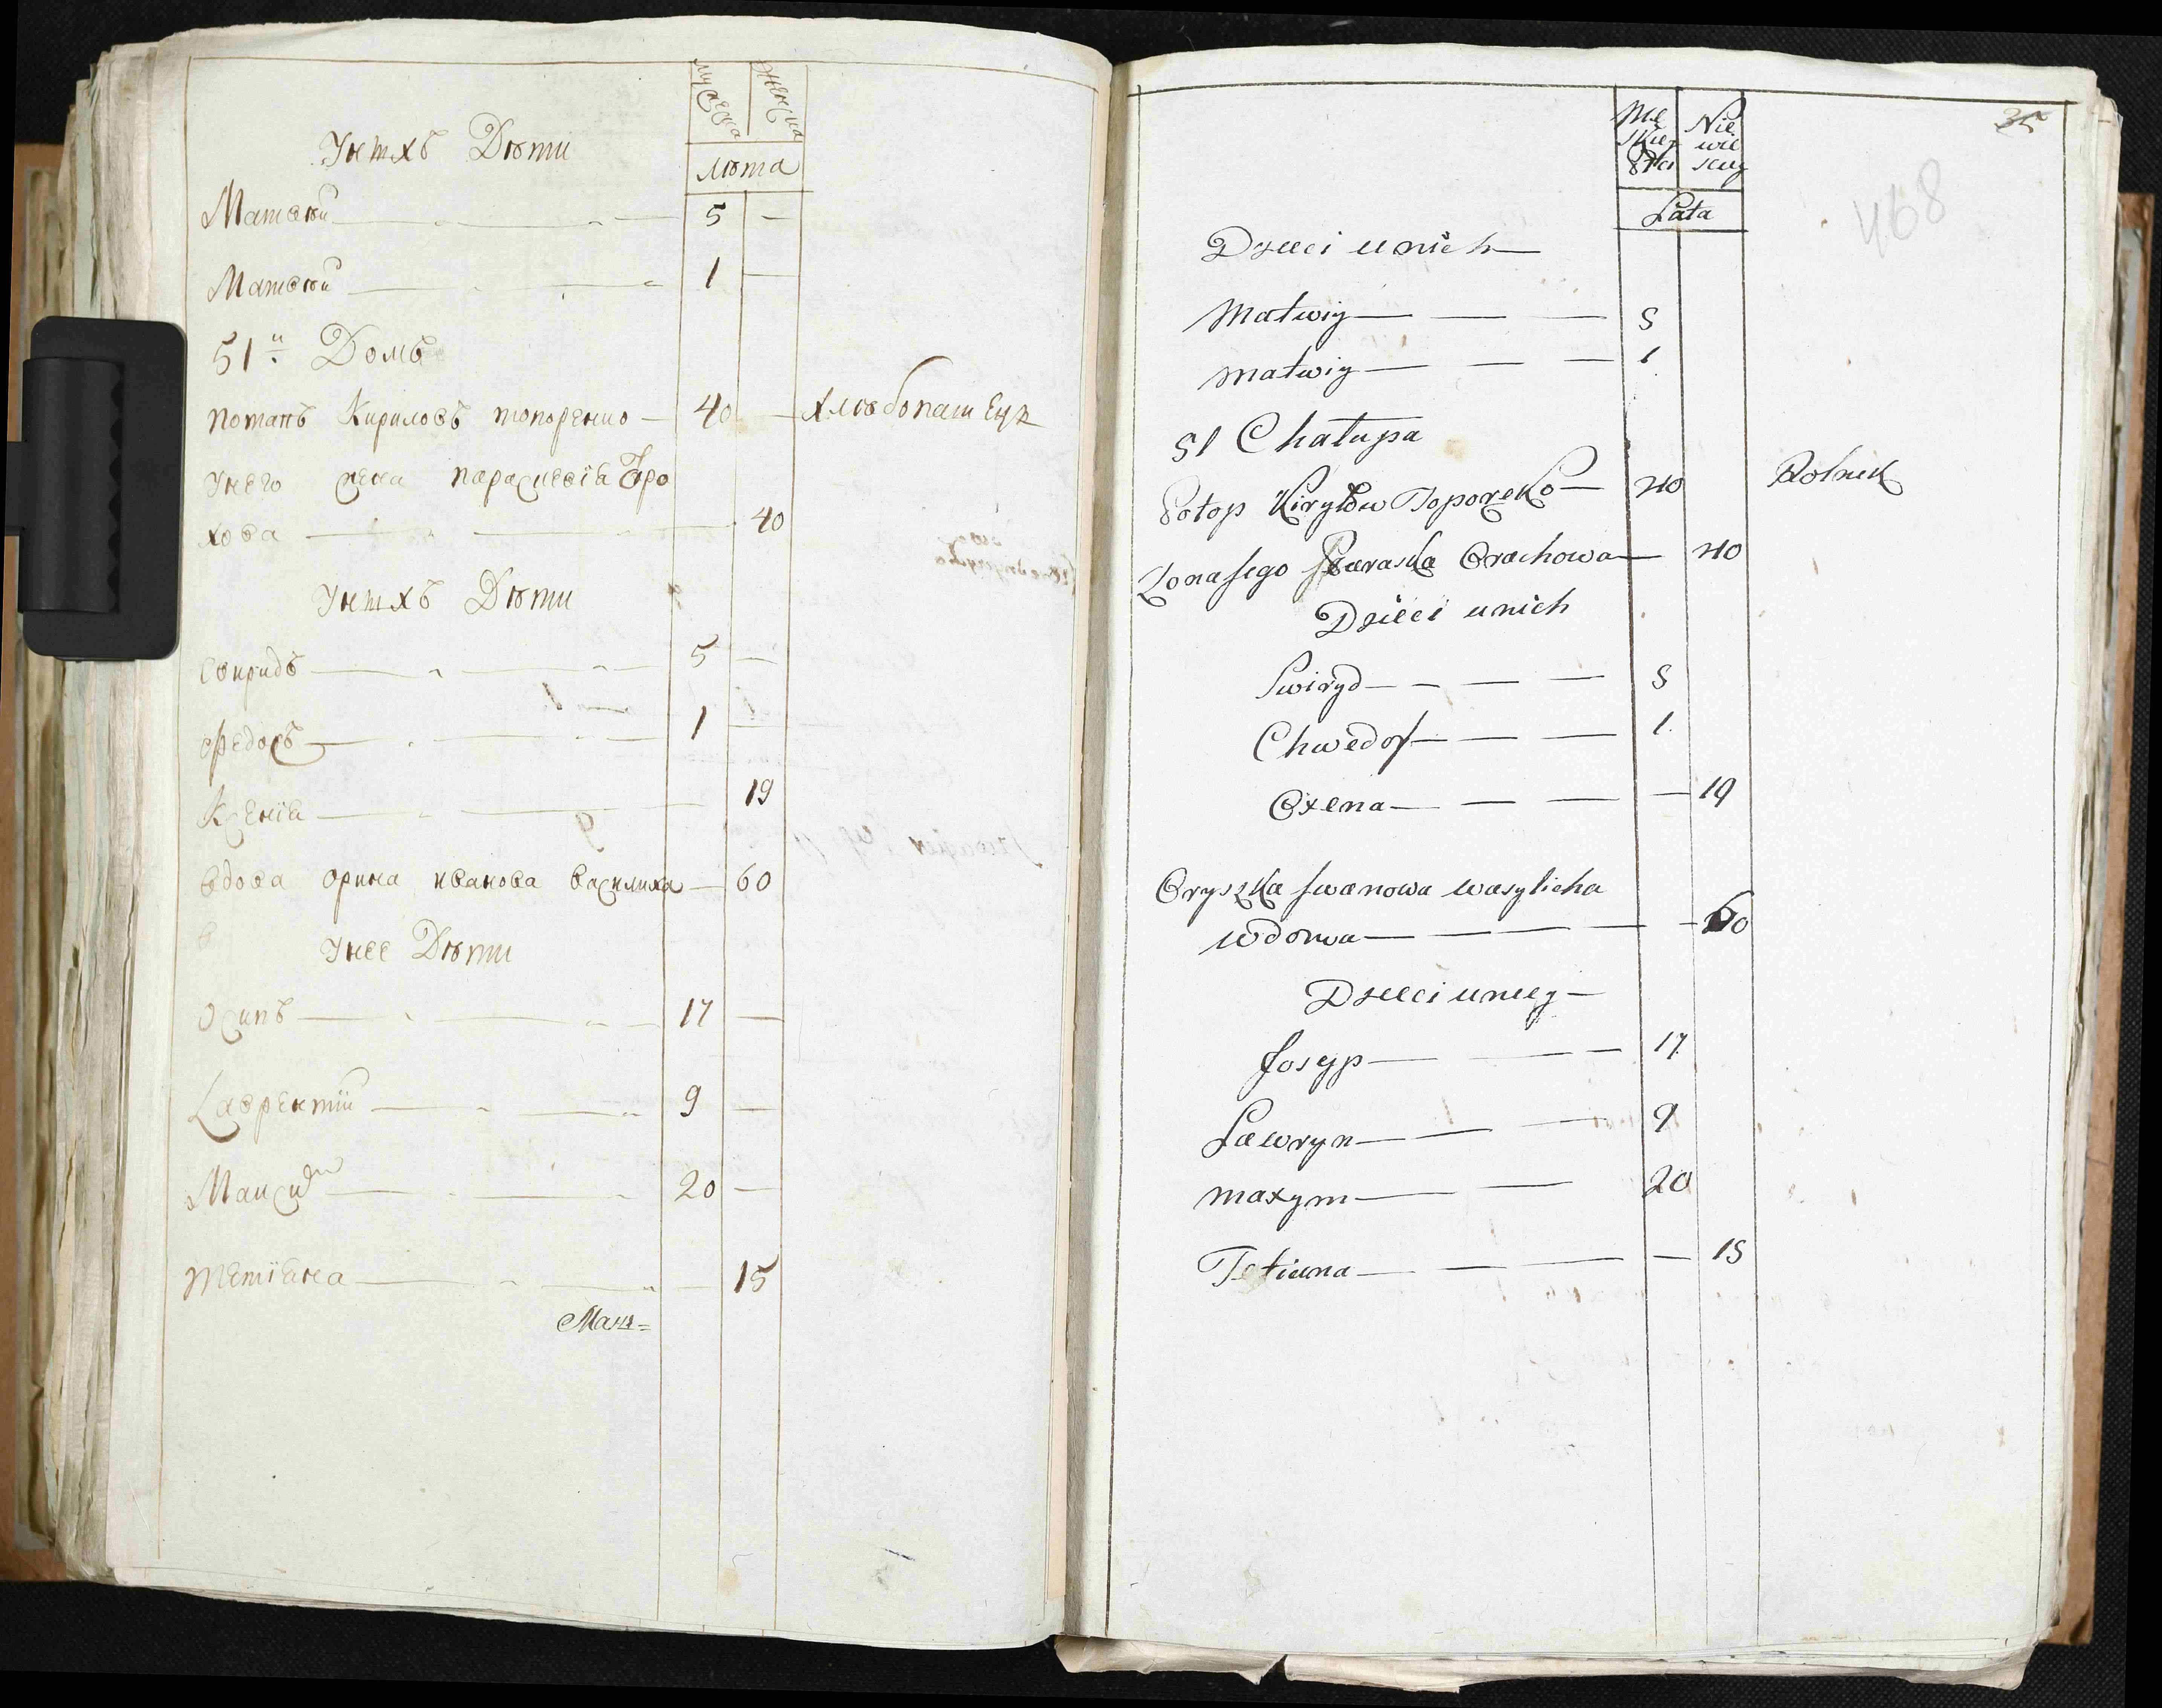 мужеска
женска
лѣта
У нихъ Дѣти
Матвѣй 5 —
Матвѣй 1 —
51й Домъ
потапъ Кириловъ топоренко — 40 — хлѣбопашецъ
У него жена парасцевiа Оро
хова — 40
У нихъ Дѣти
свиридъ 5 —
Федосъ 1 —
Ксенiа 19
вдова орина иванова василиха — 60
У нее Дѣти
Осипъ 17 —
Лаврентiй 9 —
Максимъ 20 —
Тетiана 15
35
468
Męskiey Płci
Niewiesciey
Lata
Dzieci u nich
Matwiy 5
Matwiy 1
51 Chałupa
Potop Kiryłow Toporeko 40 Rolnik
Zona jego Paraska Orachowa 40
Dzieci u nich
Swiryd 5
Chwedos 1.
Oxena 19
Oryszka Jwanowa wasylicha
wdowa 60
Dzieci u niey
Josyp 17
Lawryn 9
maxym 20
Tetiana 15